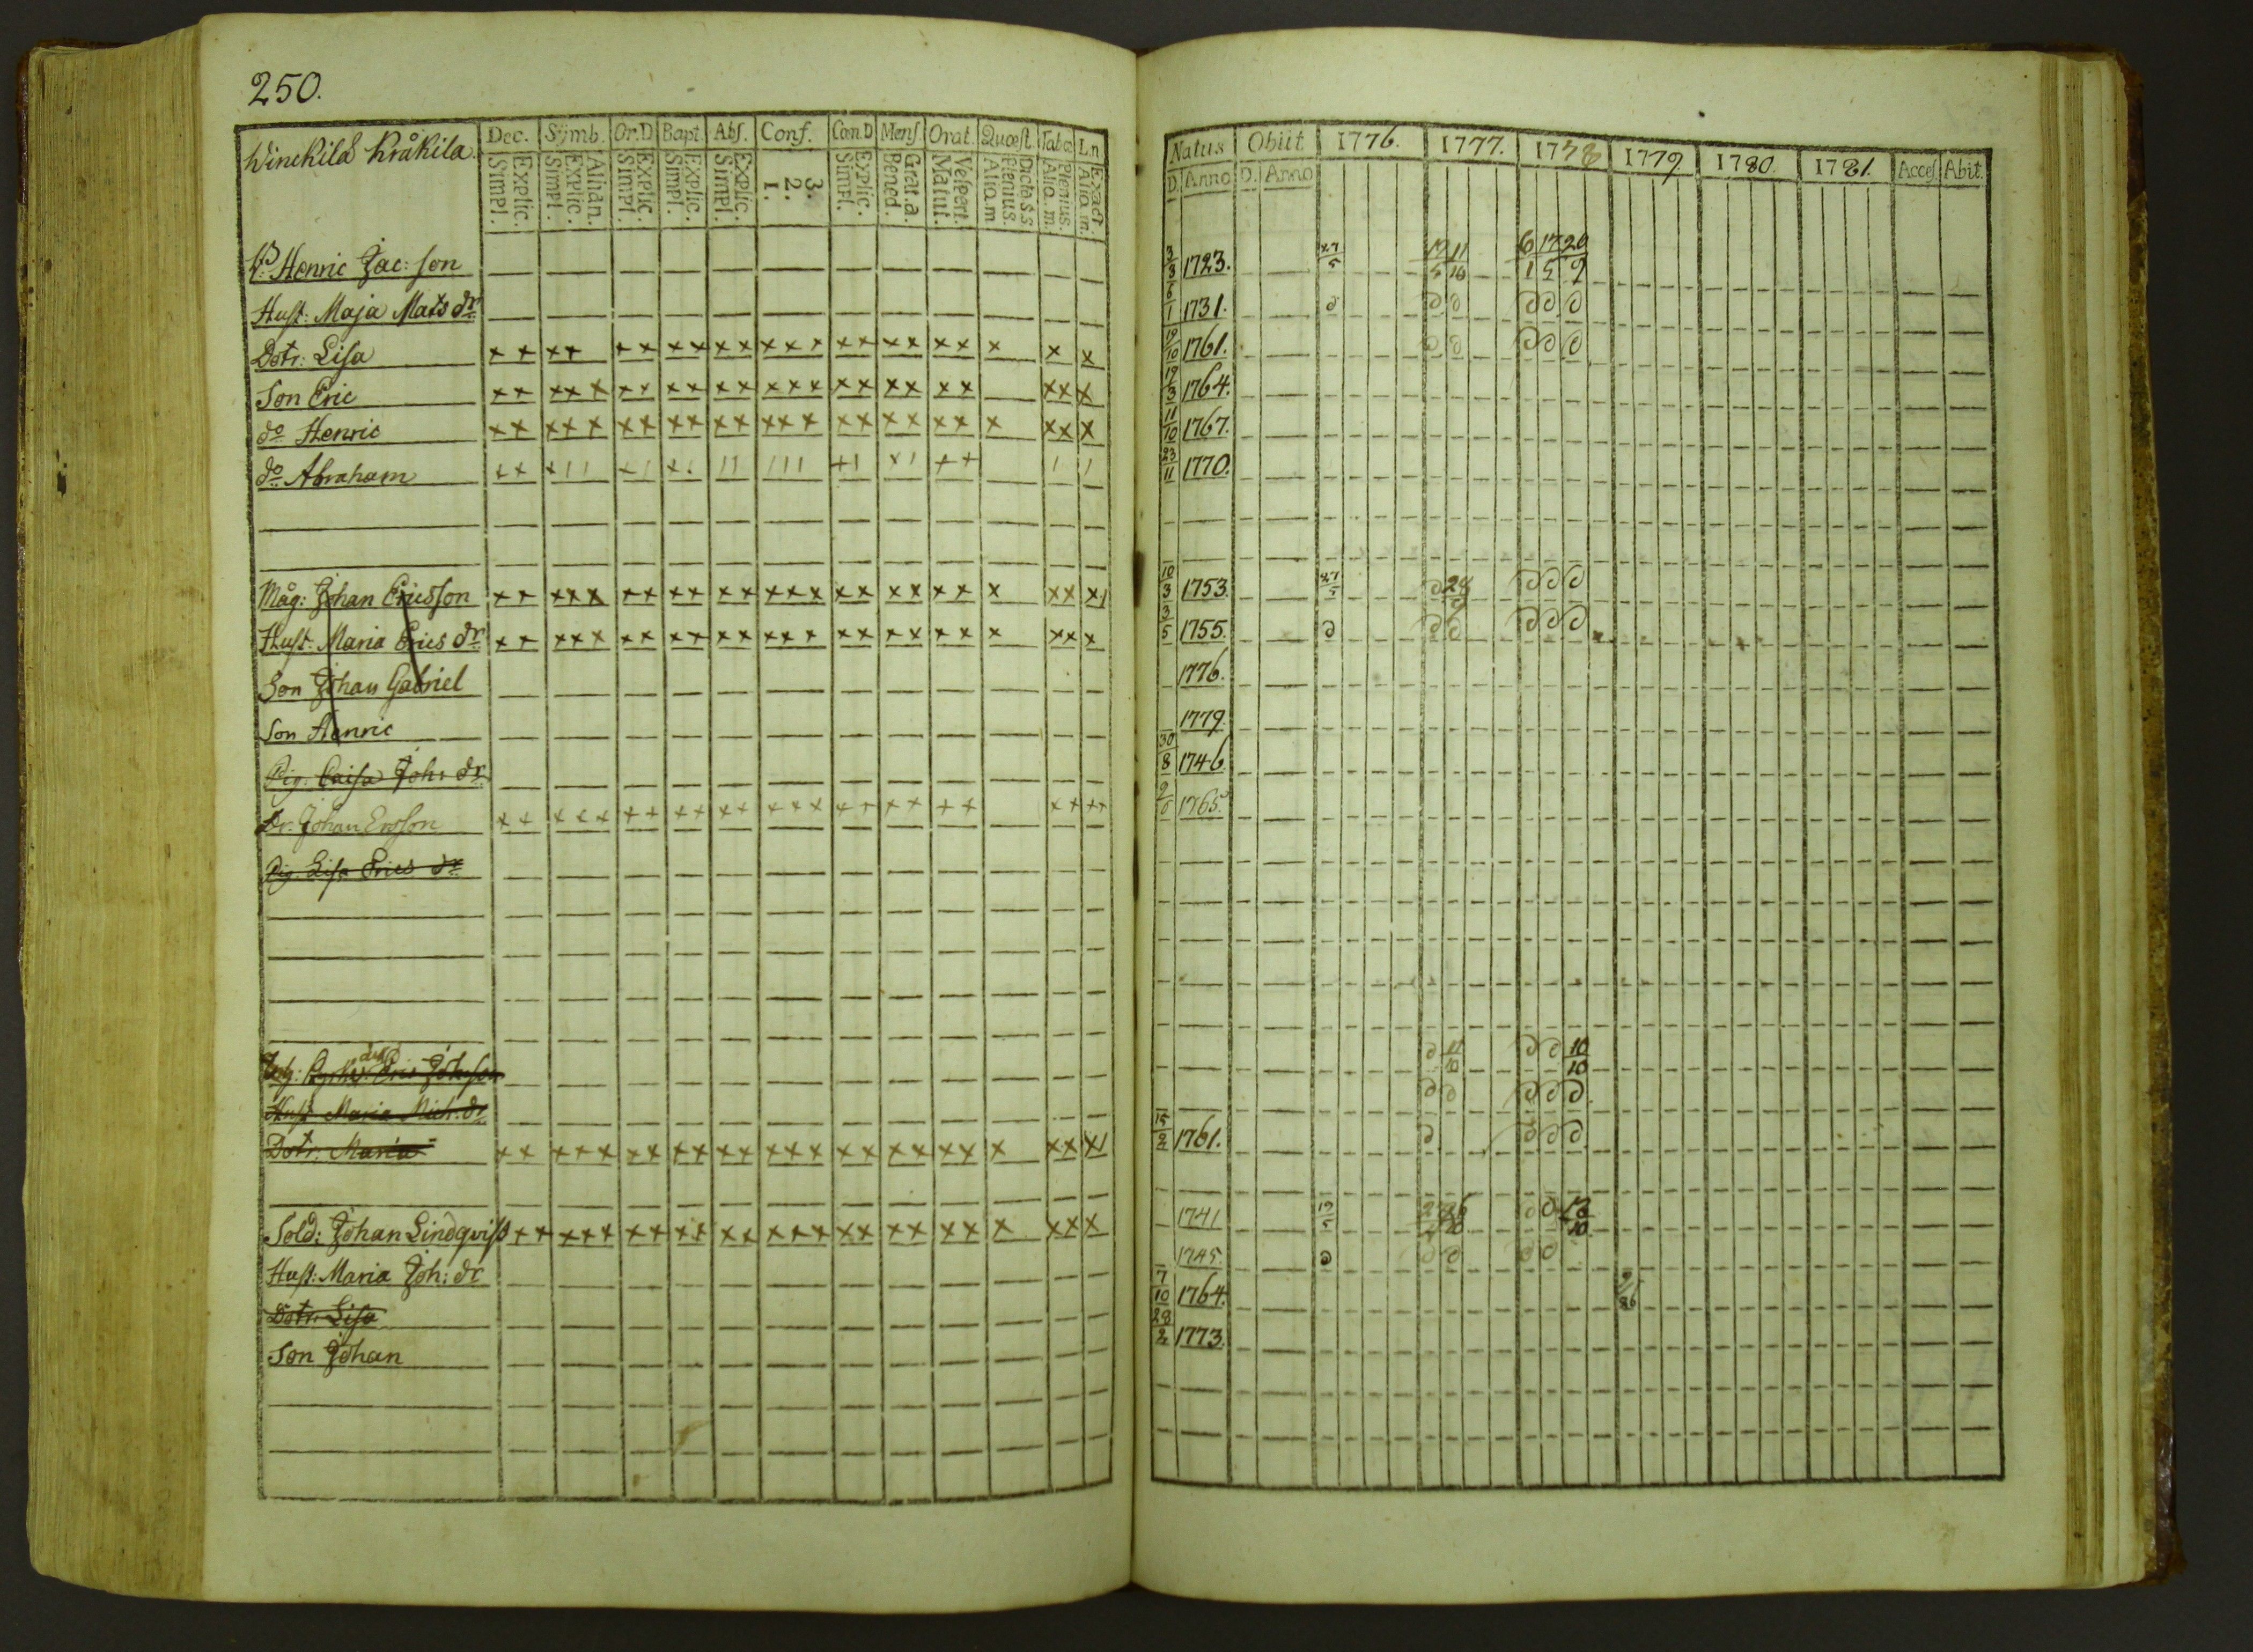 250.
Winckilä Kråkila. Dec. Symb. Or.D Bapt. Abs. Conf. Cœn.D Mens. Orat. Quœst. Tabœ Ln.
Simpl. Explic. Simpl. Explic. Athan. Simpl. Explic. Simpl. Explic. Simpl. Explic. 1. 2. 3. Simpl. Explic. Bened. Grat.a. Matut. Vespert. Aliq.m. Plenius. Dicto S.S. Aliq.m. Plenius. Aliq.m. Exact
B. Henric Jac: son
Hust: Maja Mats dr
Dotr: Lisa x x x x x x x x x x x x x x x x x x x x x x
Son Eric x x x x x x x x x x x x x x x x x x x x x x x
do Henric x x x x x x x x x x x x x x x x x x x x x x x x
do Abraham x x x 1 1 x 1 x 1 1 1 1 1 1 x 1 x 1 x x 1 1
Måg: Johan Ericsson x x x x x x x x x x x x x x x x x x x x x x x x 1
Hust: Maria Erics dr x x x x x x x x x x x x x x x x x x x x x x x x
Son Johan Gabriel
Son Henric
Pig. Caisa Joh: dr
Dr. Johan Ersson x x x x x x x x x x x x x x x x x x x x x x x x
Pig. Lisa Erics dr
Eric Johnson
Hust Maria Mich. dr
Dotr. Maria x x x x x x x x x x x x x x x x x x x x x x x x 1
Sold: Johan Lindqvist x x x x x x x x x x x x x x x x x x x x x x x x
Hust: Maria Joh: dr
Dotr. Lisa
Son Johan
Natus Obiit 1776. 1777. 1778 1779 1780 1781. Acces. Abit.
D. Anno D. Anno
3/3 1723. 27/5 19/5 11/10 6/1 17/5 20/9
6/1 1731.
19/10 1761.
19/3 1764.
11/10 1767.
23/11 1770.
10/3 1753. 27/5 28/9
3/5 1755.
1776.
1779.
30/8 1746
1765.
11/10 10/10
15/2 1761.
1741 10
1745.
7/10 1764.
28/2 1773.